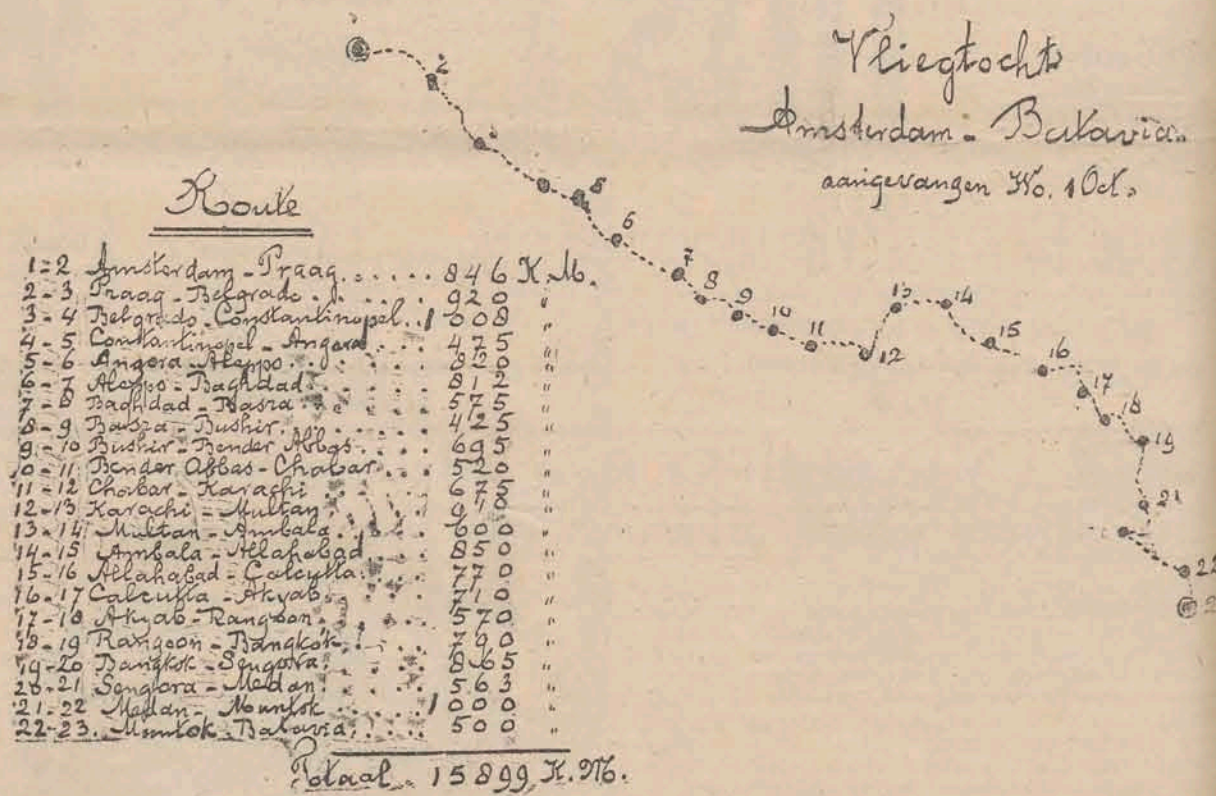 Vliegtocht
Amsterdam - Batavia.
aangevangen Wo. 1 Oct.
Route
1-2 Amsterdam - Praag. . . . . . 846 K.M.
2-3 Praag - Belgrado . . . . . . 920 "
3-4 Belgrado - Constantinopel . . 1008 "
4-5 Constantinopel - Angora . . . 475 "
5-6 Angora - Aleppo . . . . . . 820 "
6-7 Aleppo - Baghdad . . . . . . 812 "
7-8 Baghdad - Basra . . . . . . 575 "
8-9 Basra - Bushir . . . . . . 425 "
9-10 Bushir - Bender Abbas . . . 695 "
10-11 Bender Abbas - Chabar . . . 520 "
11-12 Chabar - Karachi . . . . . 675 "
12-13 Karachi - Multan . . . . . 910 "
13-14 Multan - Ambala . . . . . 600 "
14-15 Ambala - Allahabad . . . . 850 "
15-16 Allahabad - Calcutta . . . . 770 "
16-17 Calcutta - Akyab . . . . . 710 "
17-18 Akyab - Rangoon . . . . . 570 "
18-19 Rangoon - Bangkok . . . . 790 "
19-20 Bangkok - Sengora . . . . 865 "
20-21 Sengora - Medan . . . . . 563 "
21-22 Medan - Muntok . . . . . 1000 "
22-23. Muntok - Batavia . . . . 500 "
Totaal. 15899 K.M.
2
5
6
7
8
9
10
11
12
13
14
15
16
17
18
19
21
22
2